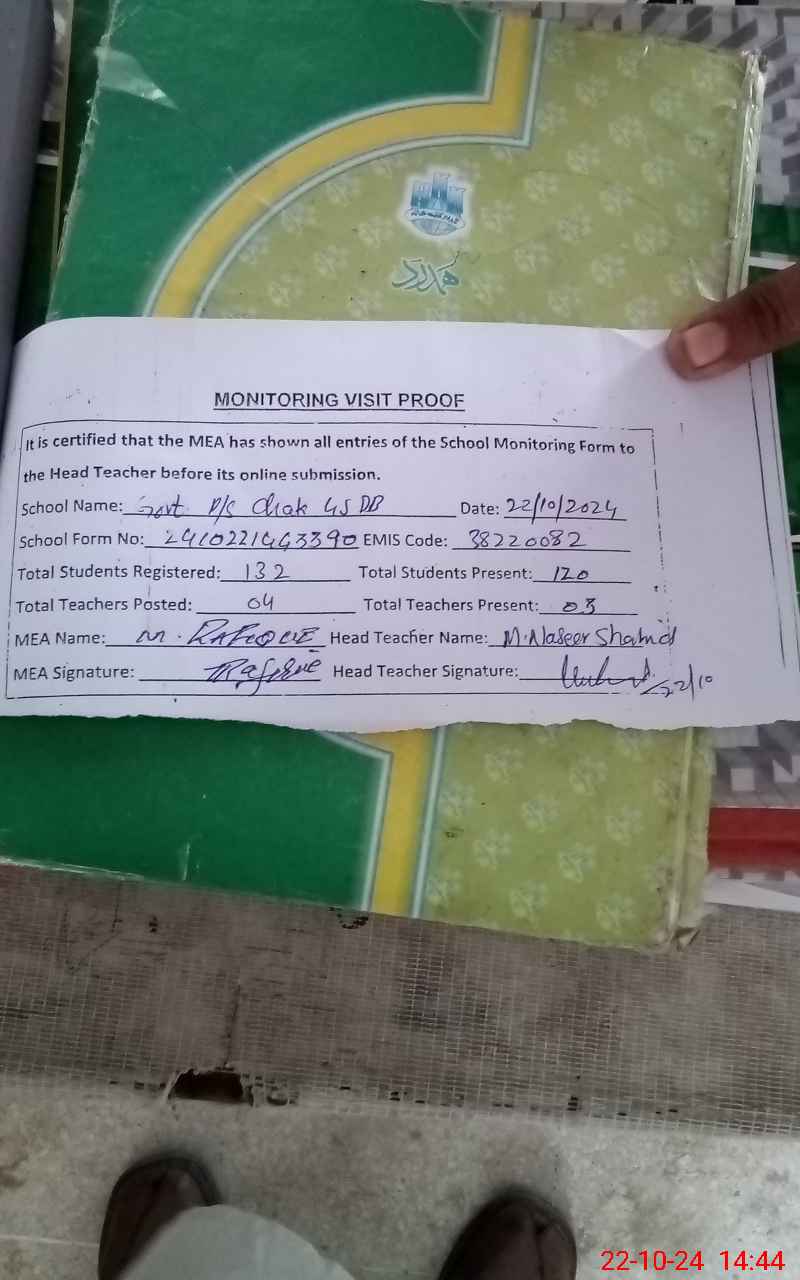 ھمدرد
MONITORING VISIT PROOF
It is certified that the MEA has shown all entries of the School Monitoring Form to
the Head Teacher before its online submission.
School Name: Govt P/S Chak 45 DB Date: 22/10/2024
School Form No: 2410221443390 EMIS Code: 38220082
Total Students Registered: 132 Total Students Present: 120
Total Teachers Posted: 04 Total Teachers Present: 03
MEA Name: M. RAFIQUE Head Teacher Name: M. Naseer Shahid
MEA Signature: Rafique Head Teacher Signature: 22/10
22-10-24 14:44